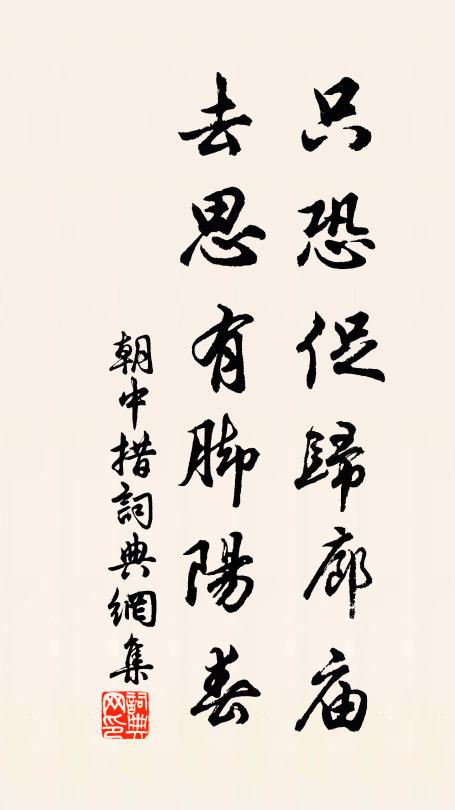 只恐促歸廊庙
去思有脚陽春
朝中措詞典網集
詞典网印